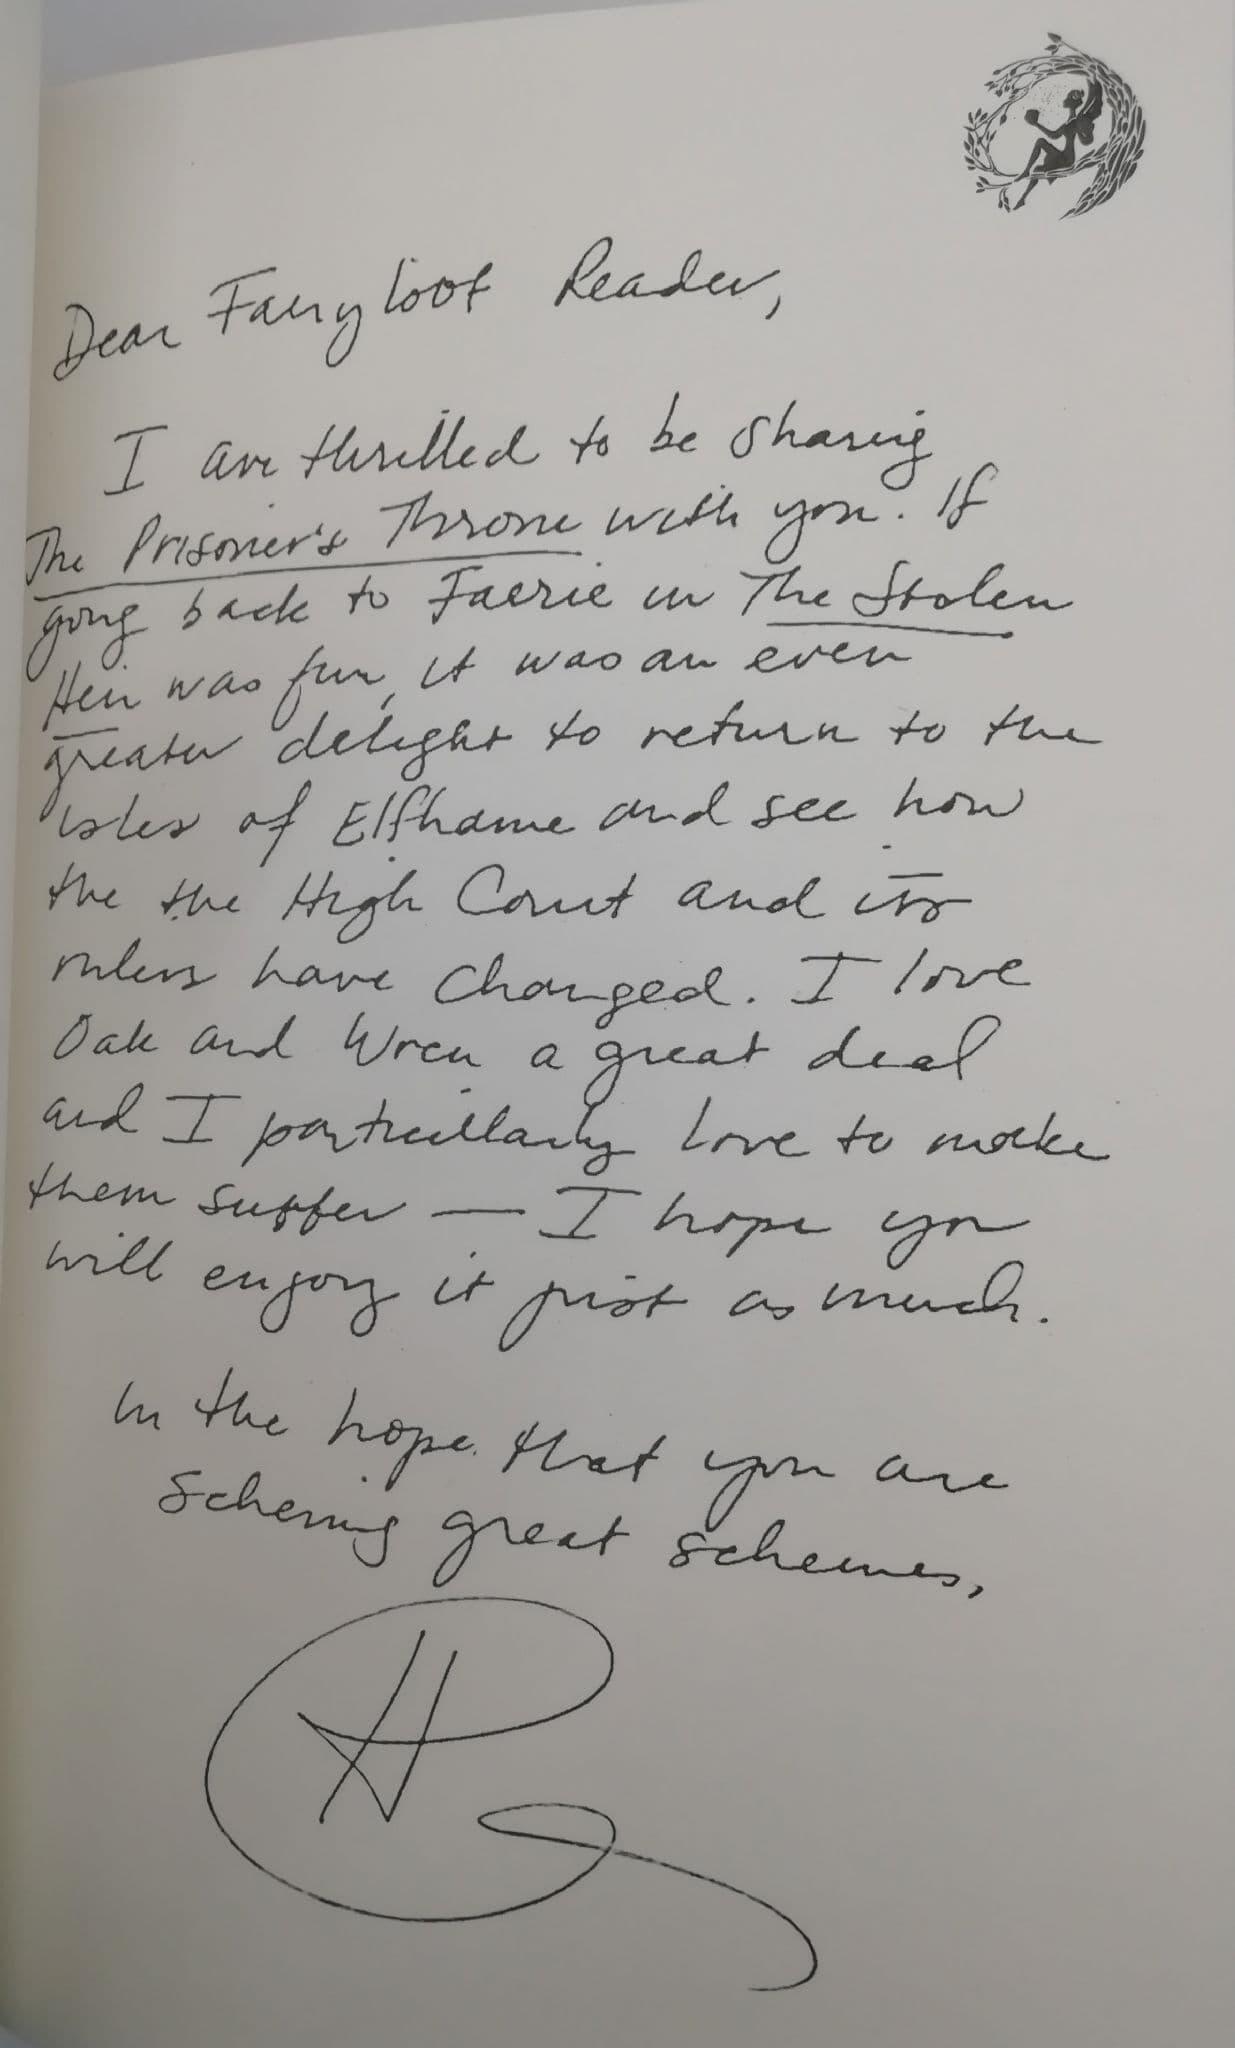 Dear Fairyloot Reader,
I am thrilled to be sharing
The Prisoner's Throne with you. If
going back to Faerie in The Stolen
Heir was fun, it was an even
greater delight to return to the
isles of Elfhame and see how
the the High Court and its
rulers have changed. I love
Oak and Wren a great deal
and I particullarly love to make
them suffer — I hope you
will enjoy it just as much.
In the hope that you are
scheming great schemes,